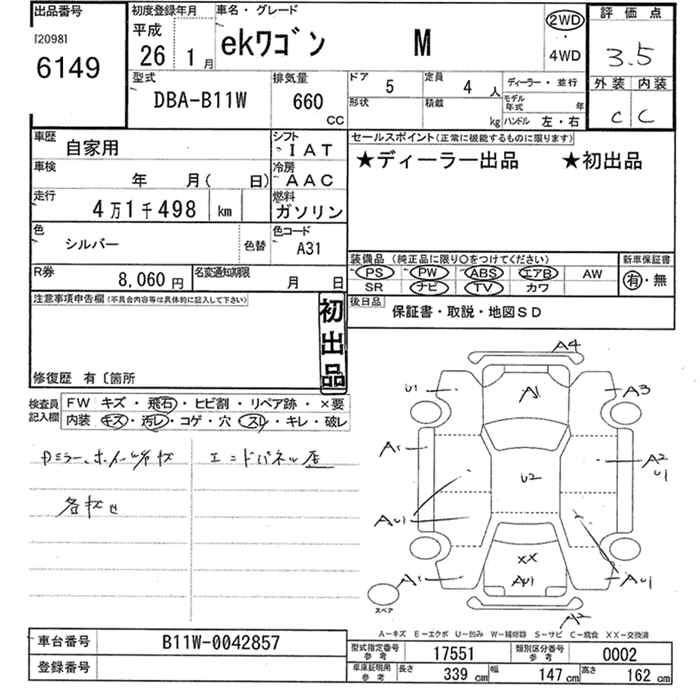 出品番号
[2098]
6149
初度登録年月
平成
26 1月
車名・グレード
ekワゴン M
2WD
・
4WD
評価点
3.5
外装 内装
C C
型式
DBA-B11W
排気量
660 CC
ドア 5
定員 4 人
形状
積載 kg
ディーラー・並行
モデル年式 年
ハンドル 左・右
車歴 自家用
シフト IAT
車検 年 月( 日)
冷房 AAC
走行 4万1千498 km
燃料 ガソリン
色 シルバー 色替
色コード A31
R券 8,060円
名変通知期限 月 日
セールスポイント(正常に機能するものに限ります)
★ディーラー出品 ★初出品
装備品(純正品に限り○をつけてください)
PS PW ABS エアB AW
SR ナビ TV カワ
新車保証書
有・無
後日品 保証書・取説・地図SD
注意事項申告欄(不具合内容等は具体的に記入して下さい)
初出品
修復歴 有〔箇所
検査員記入欄
FW キズ・飛石・ヒビ割・リペア跡・×要
内装 キズ・汚レ・コゲ・穴・スレ・キレ・破レ
エンドパネル
A4
U1
A1
A3
A1
U2
A2
U1
AU1
XX
AU1
A1
AU1
A2
スペア
A-キズ E-エクボ U-凹み W-補修跡 S-サビ C-腐食 XX-交換済
車台番号 B11W-0042857
登録番号
型式指定番号 参考 17551
類別区分番号 参考 0002
車庫証明用 参考 長さ 339 cm 幅 147 cm 高さ 162 cm